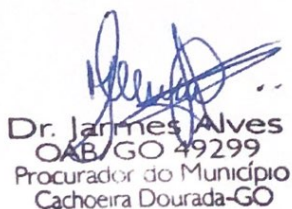 Dr. Jarmes Alves
OAB/GO 49299
Procurador do Município
Cachoeira Dourada-GO